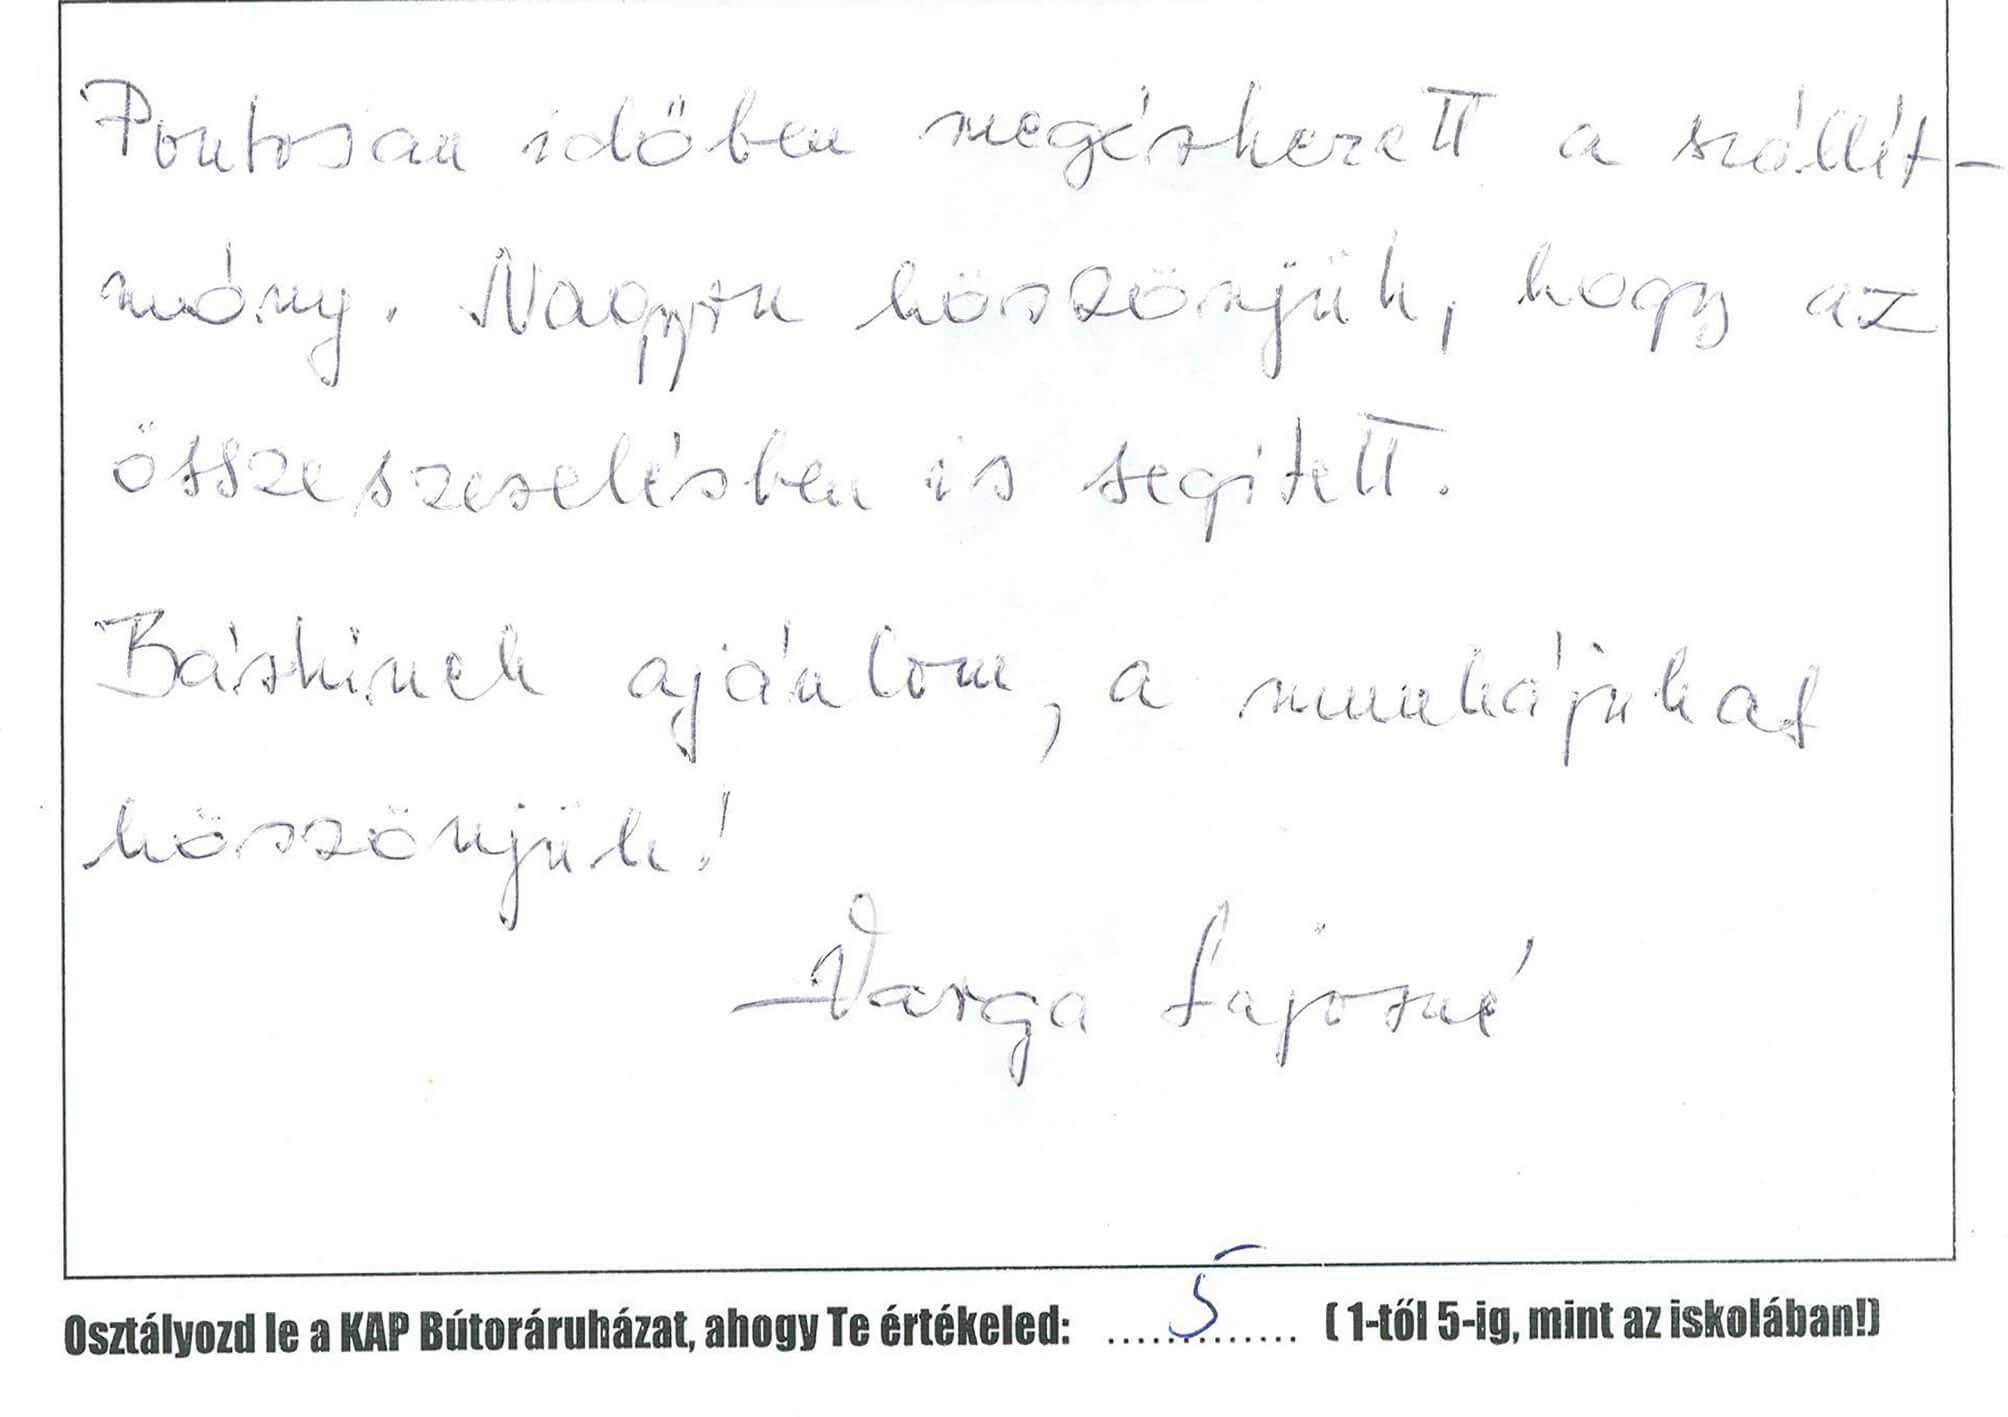 Pontosan időben megérkezett a szállít-
mány. Nagyon köszönjük, hogy az
összeszerelésben is segített.
Bárkinek ajánlom, a munkájukat
köszönjük!
Varga Lajosné
Osztályozd le a KAP Bútoráruházat, ahogy Te értékeled: .....5....... (1-től 5-ig, mint az iskolában!)